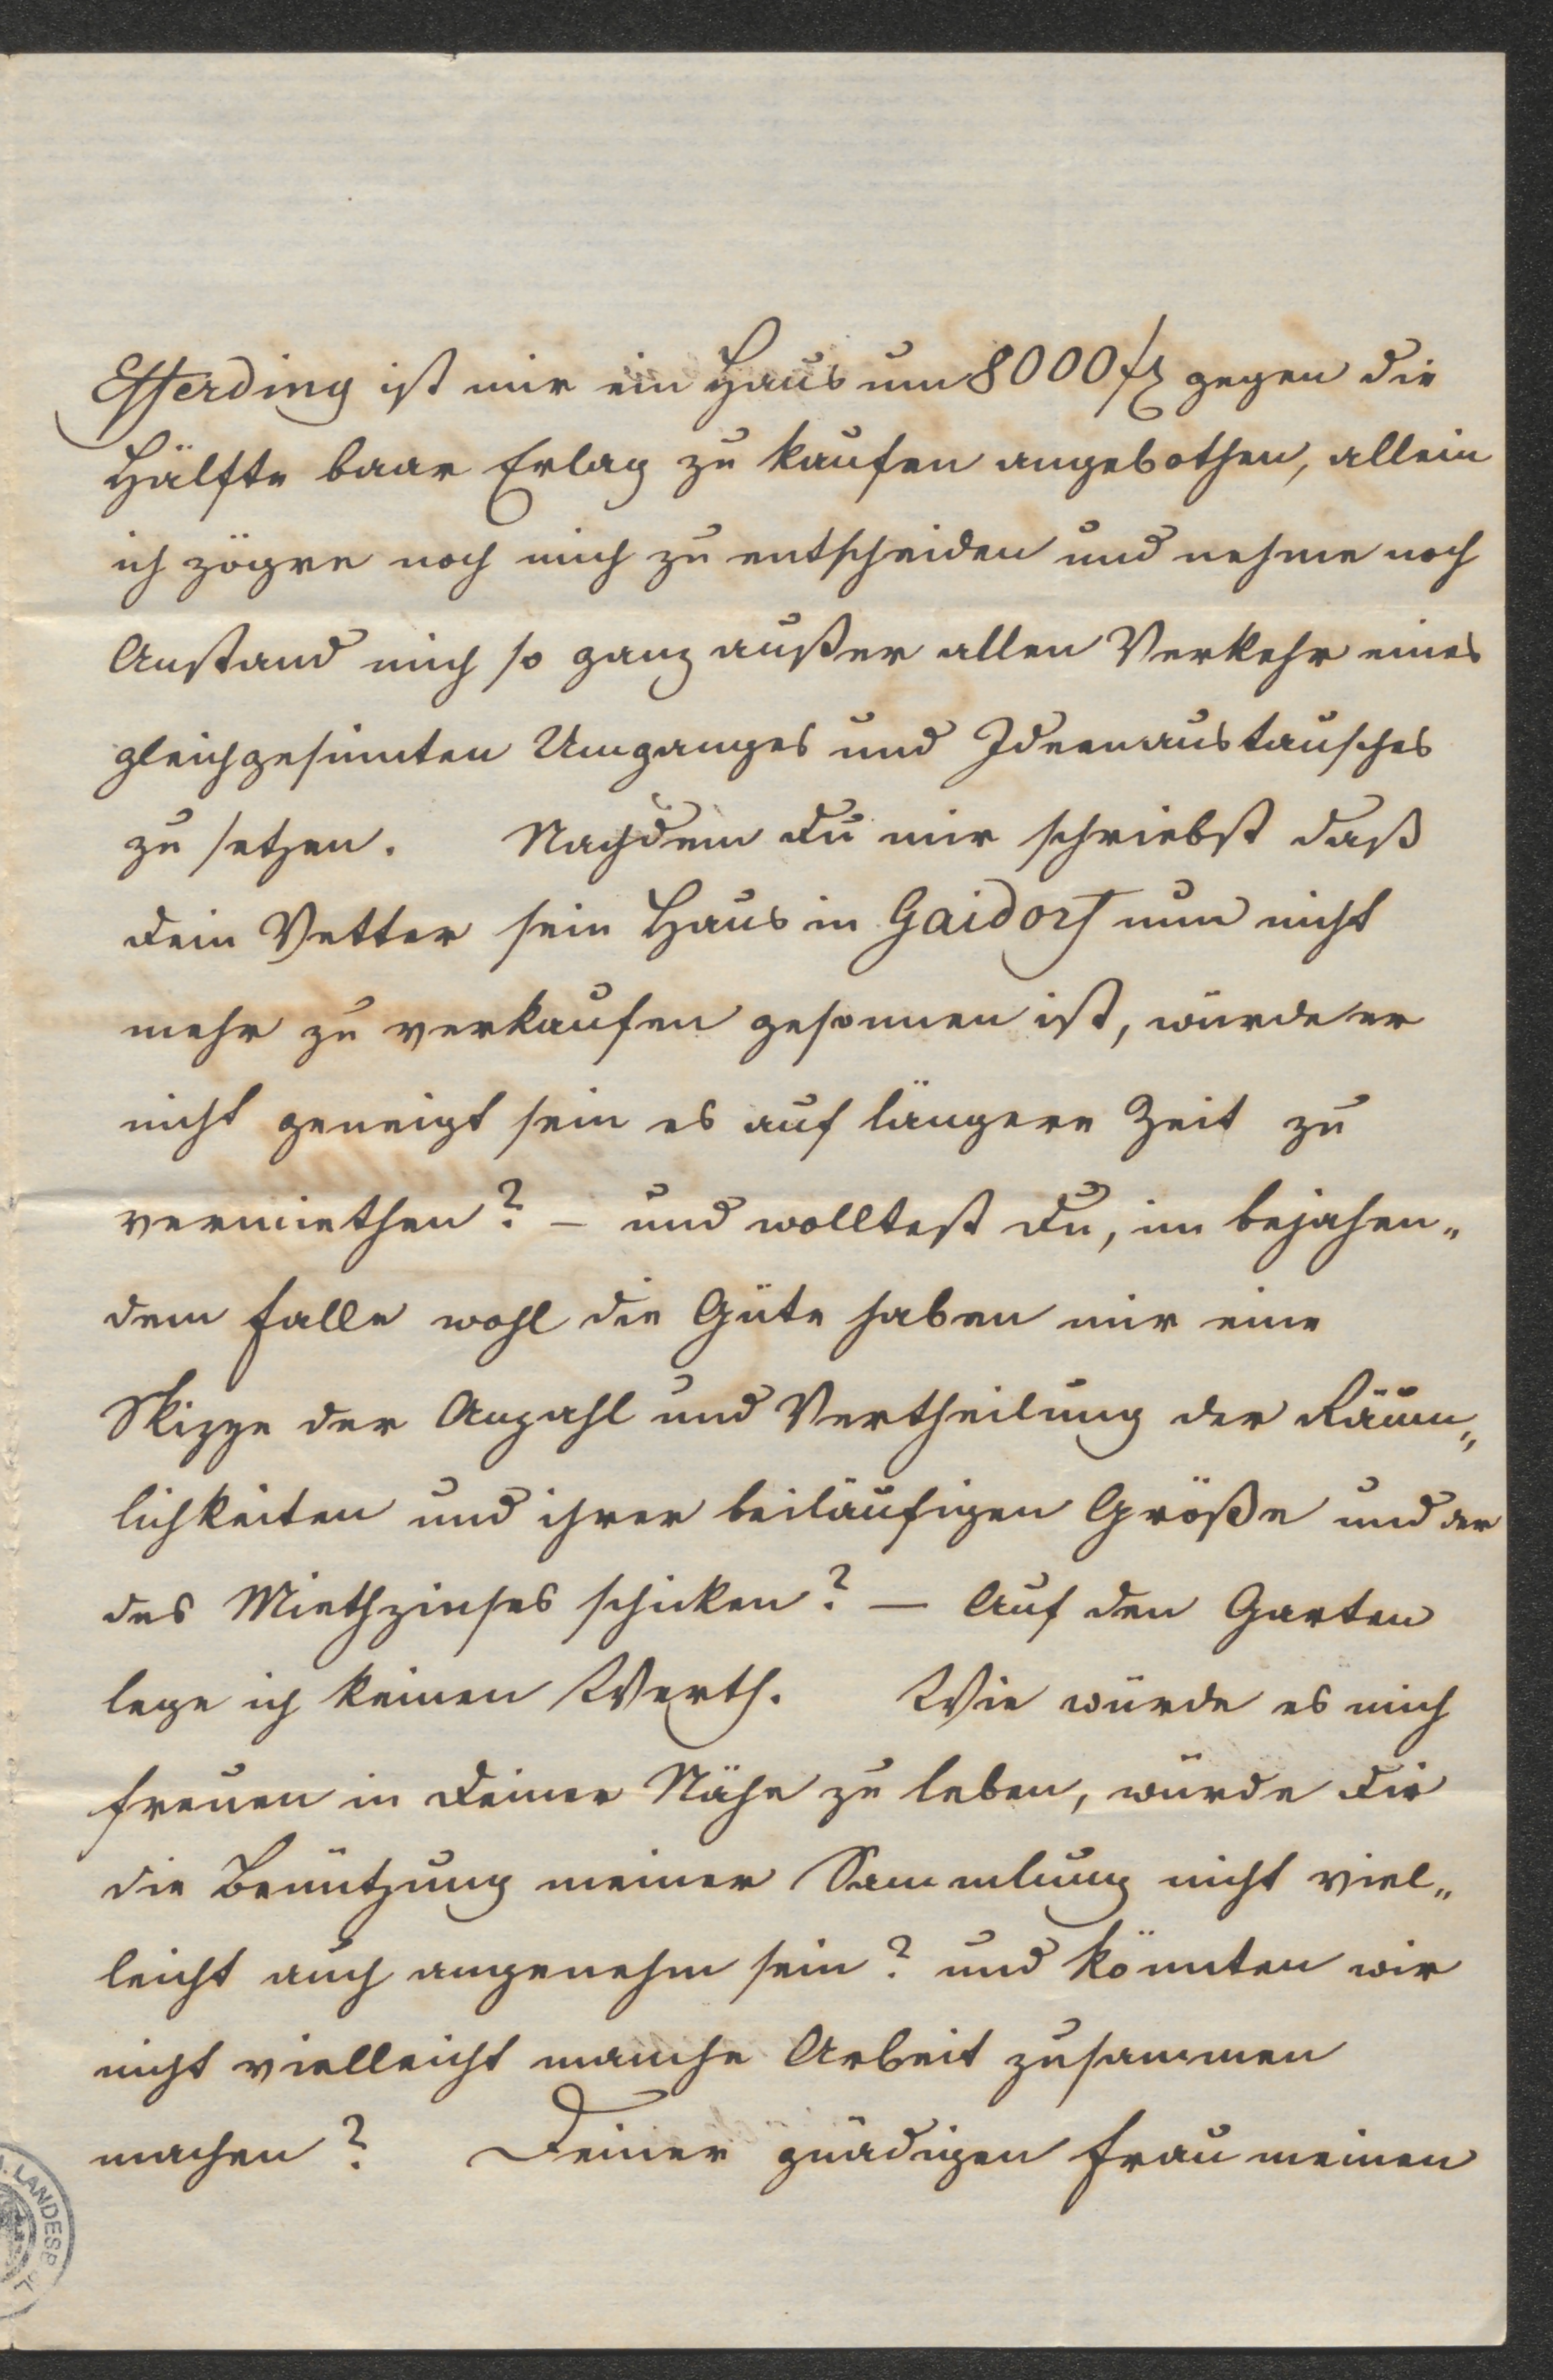 Efferding ist mir ein Haus um 8000 fl gegen die
Hälfte baar Erlag zu kaufen angebothen, allein
ich zögre noch mich zu entscheiden und nehme noch
Anstand mich so ganz außer allen Verkehr eines
gleichgesinnten Umganges und Ideenaustausches
zu setzen. Nachdem Du mir schriebst daß
Dein Vetter sein Haus in Gaidorf nun nicht
mehr zu verkaufen gesonnen ist, würde er
nicht geneigt sein es auf längere Zeit zu
vermiethen? – und wolltest Du, im bejahen„
dem Falle wohl die Güte haben mir eine
Skizze der Anzahl und Vertheilung der Räum„
lichkeiten und ihrer beiläufigen Größe und der
des Miethzinses schicken? – Auf den Garten
lege ich keinen Werth. Wie würde es mich
freuen in Deiner Nähe zu leben, würde Dir
die Benützung meiner Sammlung nicht viel„
leicht auch angenehm sein? und könnten wir
nicht vielleicht manche Arbeit zusammen
machen? Deiner gnädigen Frau meinen
LANDESB